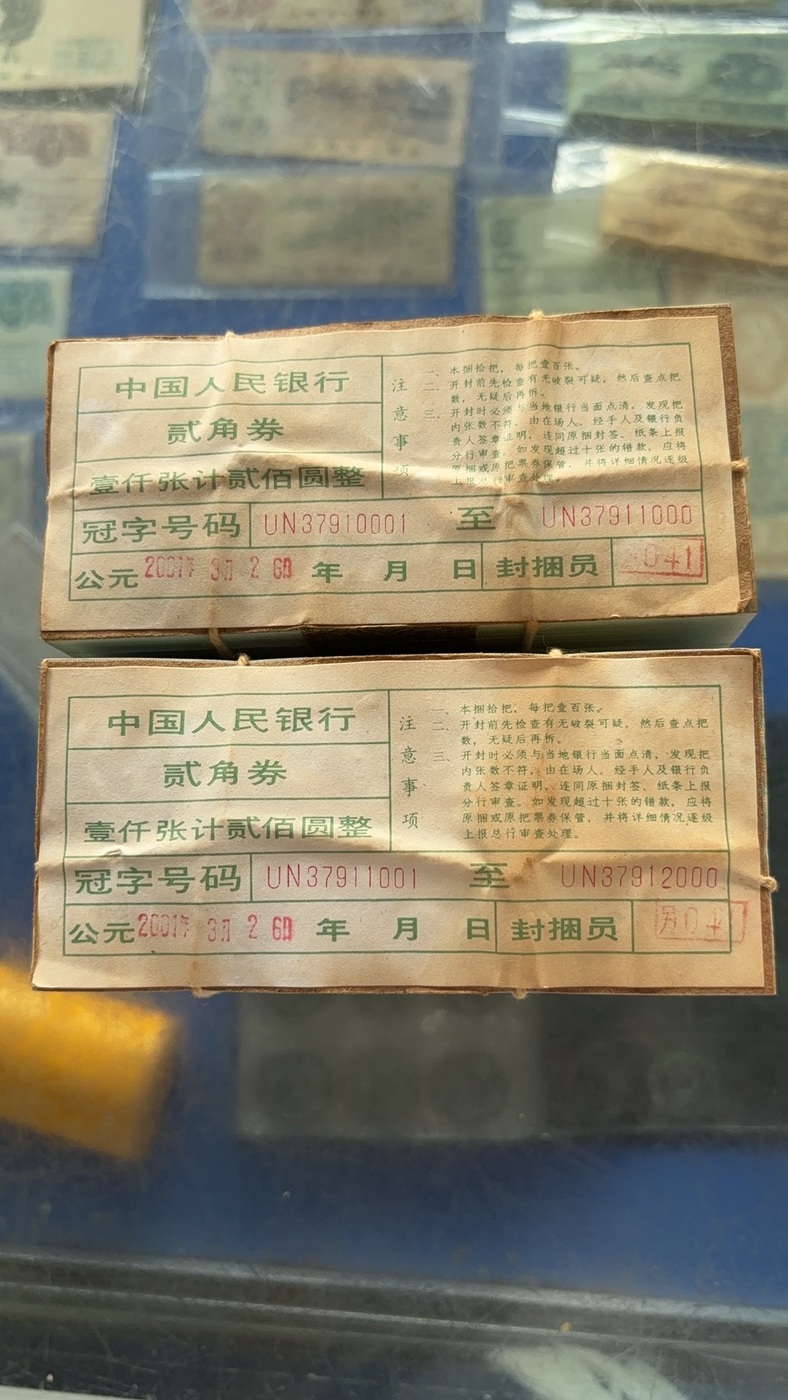 中国人民银行
贰角券
壹仟张计贰佰圆整
注意事项
一、本捆拾把,每把壹百张。
二、开封前先检查有无破裂可疑,然后查点把
数,无疑后再拆。
三、开封时必须与当地银行当面点清,发现把
内张数不符,由在场人、经手人及银行负
责人签章证明,连同原捆封签、纸条上报
分行审查。如发现超过十张的错款,应将
原捆或原把票券保管,并将详细情况逐级
上报总行审查处理。
冠字号码 UN37910001 至 UN37911000
公元 2001年 3月 26日 年 月 日 封捆员 041
中国人民银行
贰角券
壹仟张计贰佰圆整
注意事项
一、本捆拾把,每把壹百张。
二、开封前先检查有无破裂可疑,然后查点把
数,无疑后再拆。
三、开封时必须与当地银行当面点清,发现把
内张数不符,由在场人、经手人及银行负
责人签章证明,连同原捆封签、纸条上报
分行审查。如发现超过十张的错款,应将
原捆或原把票券保管,并将详细情况逐级
上报总行审查处理。
冠字号码 UN37911001 至 UN37912000
公元 2001年 3月 26日 年 月 日 封捆员